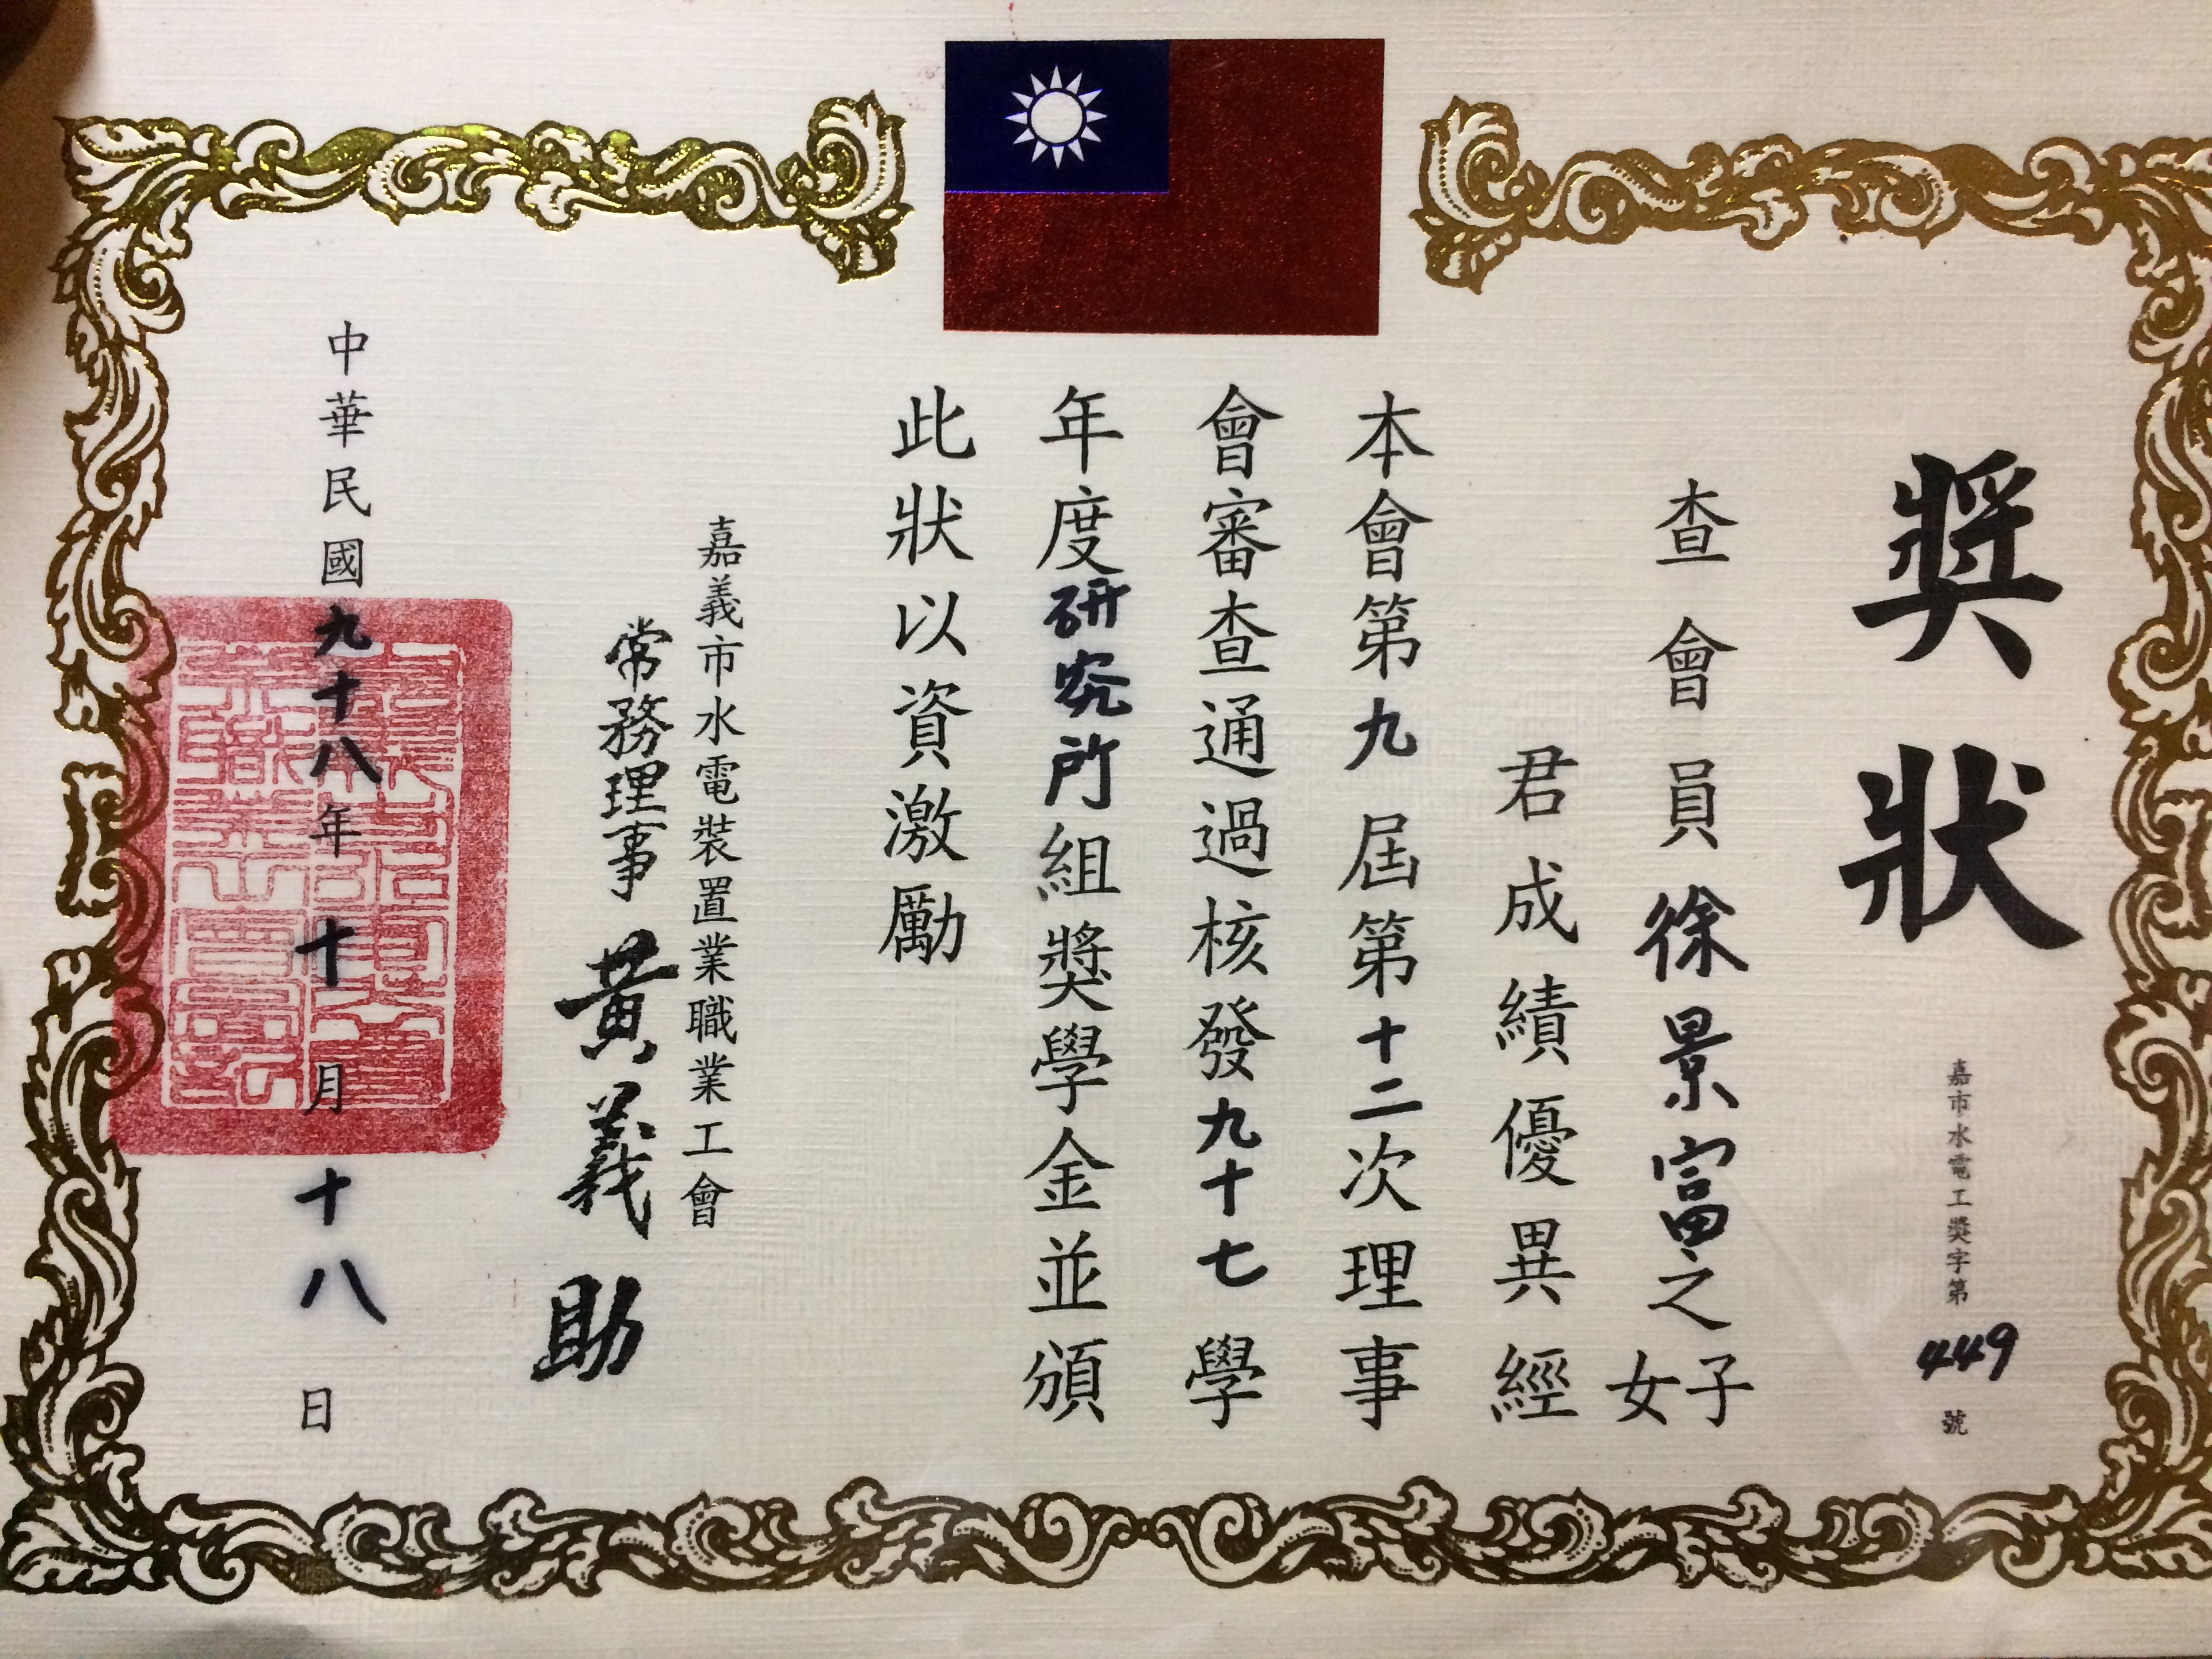 獎狀
嘉市水電工獎字第449號
查會員徐景富之子女
君成績優異經
本會第九屆第十二次理事
會審查通過核發九十七學
年度研究所組獎學金並頒
此狀以資激勵
嘉義市水電裝置業職業工會
常務理事 黃義助
中華民國九十八年十月十八日